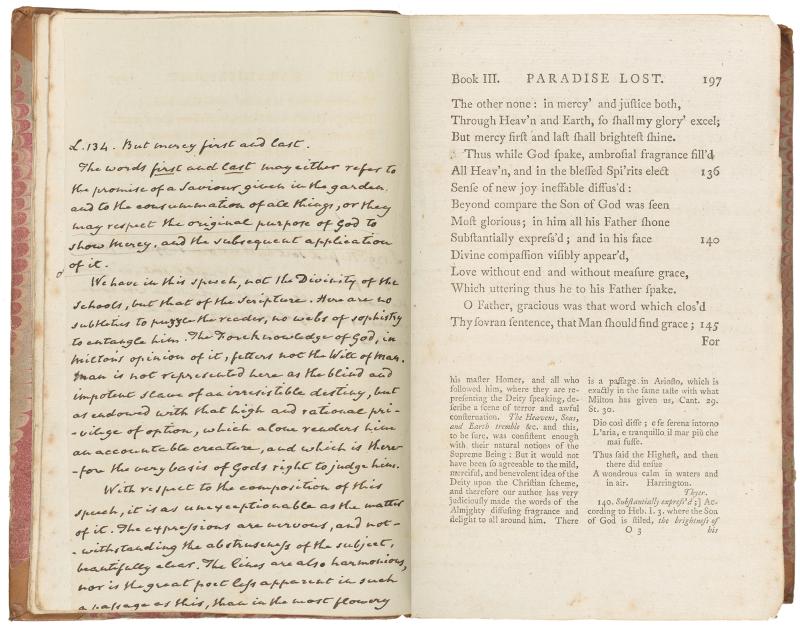 L. 134. But mercy first and last.
The words first and last may either refer to
the promise of a Saviour given in the garden,
and to the consummation of all things, or they
may respect the original purpose of God to
show mercy, and the subsequent application
of it.
We have in this speech, not the Divinity of the
Schools, but that of the Scripture. Here are no
subtleties to puzzle the reader, no webs of sophistry
to entangle him. The Foreknowledge of God, in
Milton's opinion of it, fetters not the Will of man.
Man is not represented here as the blind and
impotent slave of an irresistible destiny, but
as endowed with that high and rational pri-
-vilege of option, which alone renders him
an accountable creature, and which is there-
-fore the very basis of Gods right to judge him.
With respect to the composition of this
speech, it is as unexceptionable as the matter
of it. The expressions are nervous, and not-
-withstanding the abstruseness of the subject,
beautifully clear. The lines are also harmonious,
nor is the great poet less apparent in such
a passage as this, than in the most flowery
Book III. PARADISE LOST. 197
The other none: in mercy' and juſtice both,
Through Heav'n and Earth, ſo ſhall my glory' excel;
But mercy firſt and laſt ſhall brighteſt ſhine.
Thus while God ſpake, ambroſial fragrance fill'd
All Heav'n, and in the bleſſed Spi'rits elect 136
Senſe of new joy ineffable diffus'd:
Beyond compare the Son of God was ſeen
Moſt glorious; in him all his Father ſhone
Subſtantially expreſs'd; and in his face 140
Divine compaſſion viſibly appear'd,
Love without end and without meaſure grace,
Which uttering thus he to his Father ſpake.
O Father, gracious was that word which clos'd
Thy ſovran ſentence, that Man ſhould find grace; 145
For
his maſter Homer, and all who
followed him, where they are re-
preſenting the Deity ſpeaking, de-
ſcribe a ſcene of terror and awful
conſternation. The Heavens, Seas,
and Earth tremble &c. and this,
to be ſure, was conſiſtent enough
with their natural notions of the
Supreme Being: But it would not
have been ſo agreeable to the mild,
merciful, and benevolent idea of the
Deity upon the Chriſtian ſcheme,
and therefore our author has very
judiciouſly made the words of the
Almighty diffuſing fragrance and
delight to all around him. There
is a paſſage in Arioſto, which is
exactly in the ſame taſte with what
Milton has given us, Cant. 29.
St. 30.
Dio coſi diſſe; e fe ſerena intorno
L'aria, e tranquillo il mar più che
mai fuſſe.
Thus ſaid the Higheſt, and then
there did enſue
A wondrous calm in waters and
in air. Harrington.
Thyer.
140. Subſtantially expreſs'd;] Ac-
cording to Heb. I. 3. where the Son
of God is ſtiled, the brightneſs of
O 3 his